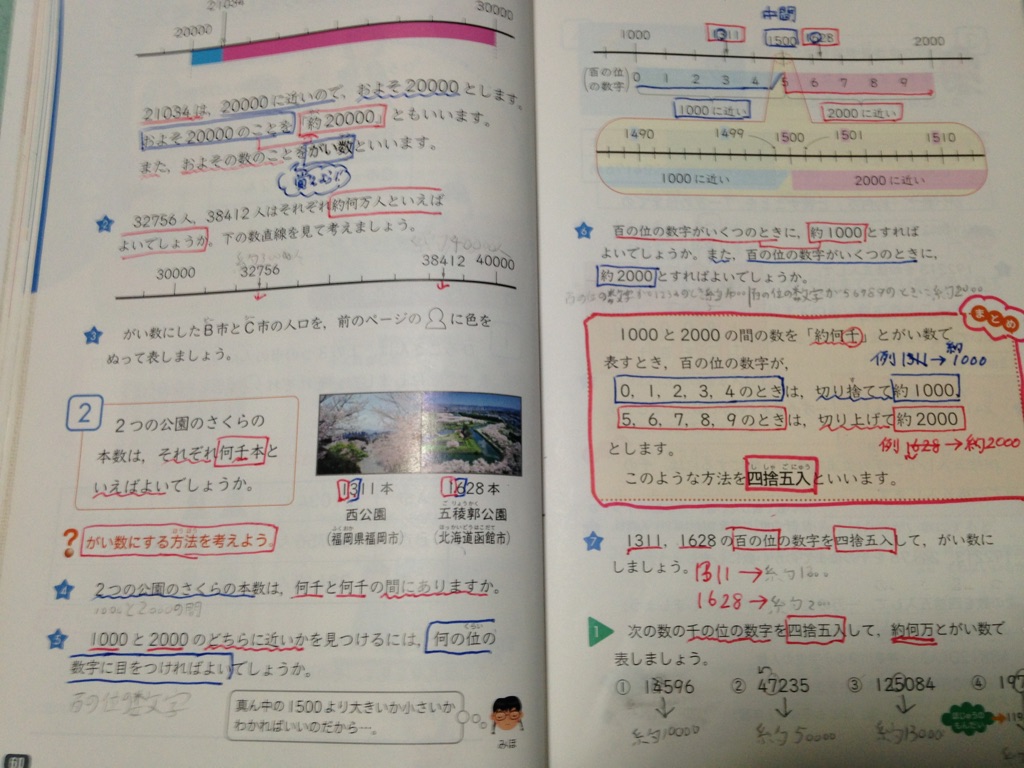 21034
20000
30000
21034は，20000に近いので，およそ20000とします。
およそ20000のことを「約20000」ともいいます。
また，およその数のことをがい数といいます。
2 32756人，38412人はそれぞれ約何万人といえば
よいでしょうか。下の数直線を見て考えましょう。
30000 32756 38412 40000
3 がい数にしたB市とC市の人口を，前のページの に色を
ぬって表しましょう。
2
2つの公園のさくらの
本数は，それぞれ何千本と
いえばよいでしょうか。
1311本 1628本
西公園 五稜郭公園
ごりょうかく
(福岡県福岡市) (北海道函館市)
ふくおか ほっかいどうはこだて
? がい数にする方法を考えよう。
ほうほう
4 2つの公園のさくらの本数は，何千と何千の間にありますか。
1000と2000の間
5 1000と2000のどちらに近いかを見つけるには，何の位の
くらい
数字に目をつければよいでしょうか。
百の位の数字
真ん中の1500より大きいか小さいか
わかればいいのだから…。
みほ
中間
1000 1311 1500 1628 2000
(百の位の数字) 0 1 2 3 4 5 6 7 8 9
1000に近い 2000に近い
1490 1499 1500 1501 1510
1000に近い 2000に近い
6 百の位の数字がいくつのときに，約1000とすれば
よいでしょうか。また，百の位の数字がいくつのときに，
約2000とすればよいでしょうか。
まとめ
1000と2000の間の数を「約何千」とがい数で
表すとき，百の位の数字が，
例1311→約1000
0，1，2，3，4のときは，切り捨てて約1000
5，6，7，8，9のときは，切り上げて約2000
とします。
例1628→約2000
ししゃごにゅう
このような方法を四捨五入といいます。
7 1311，1628の百の位の数字を四捨五入して，がい数に
しましょう。
1311→約1000
1628→約2000
1 次の数の千の位の数字を四捨五入して，約何万とがい数で
表しましょう。
① 14596 ② 47235 ③ 125084 ④ 197
約10000 約50000 約13000